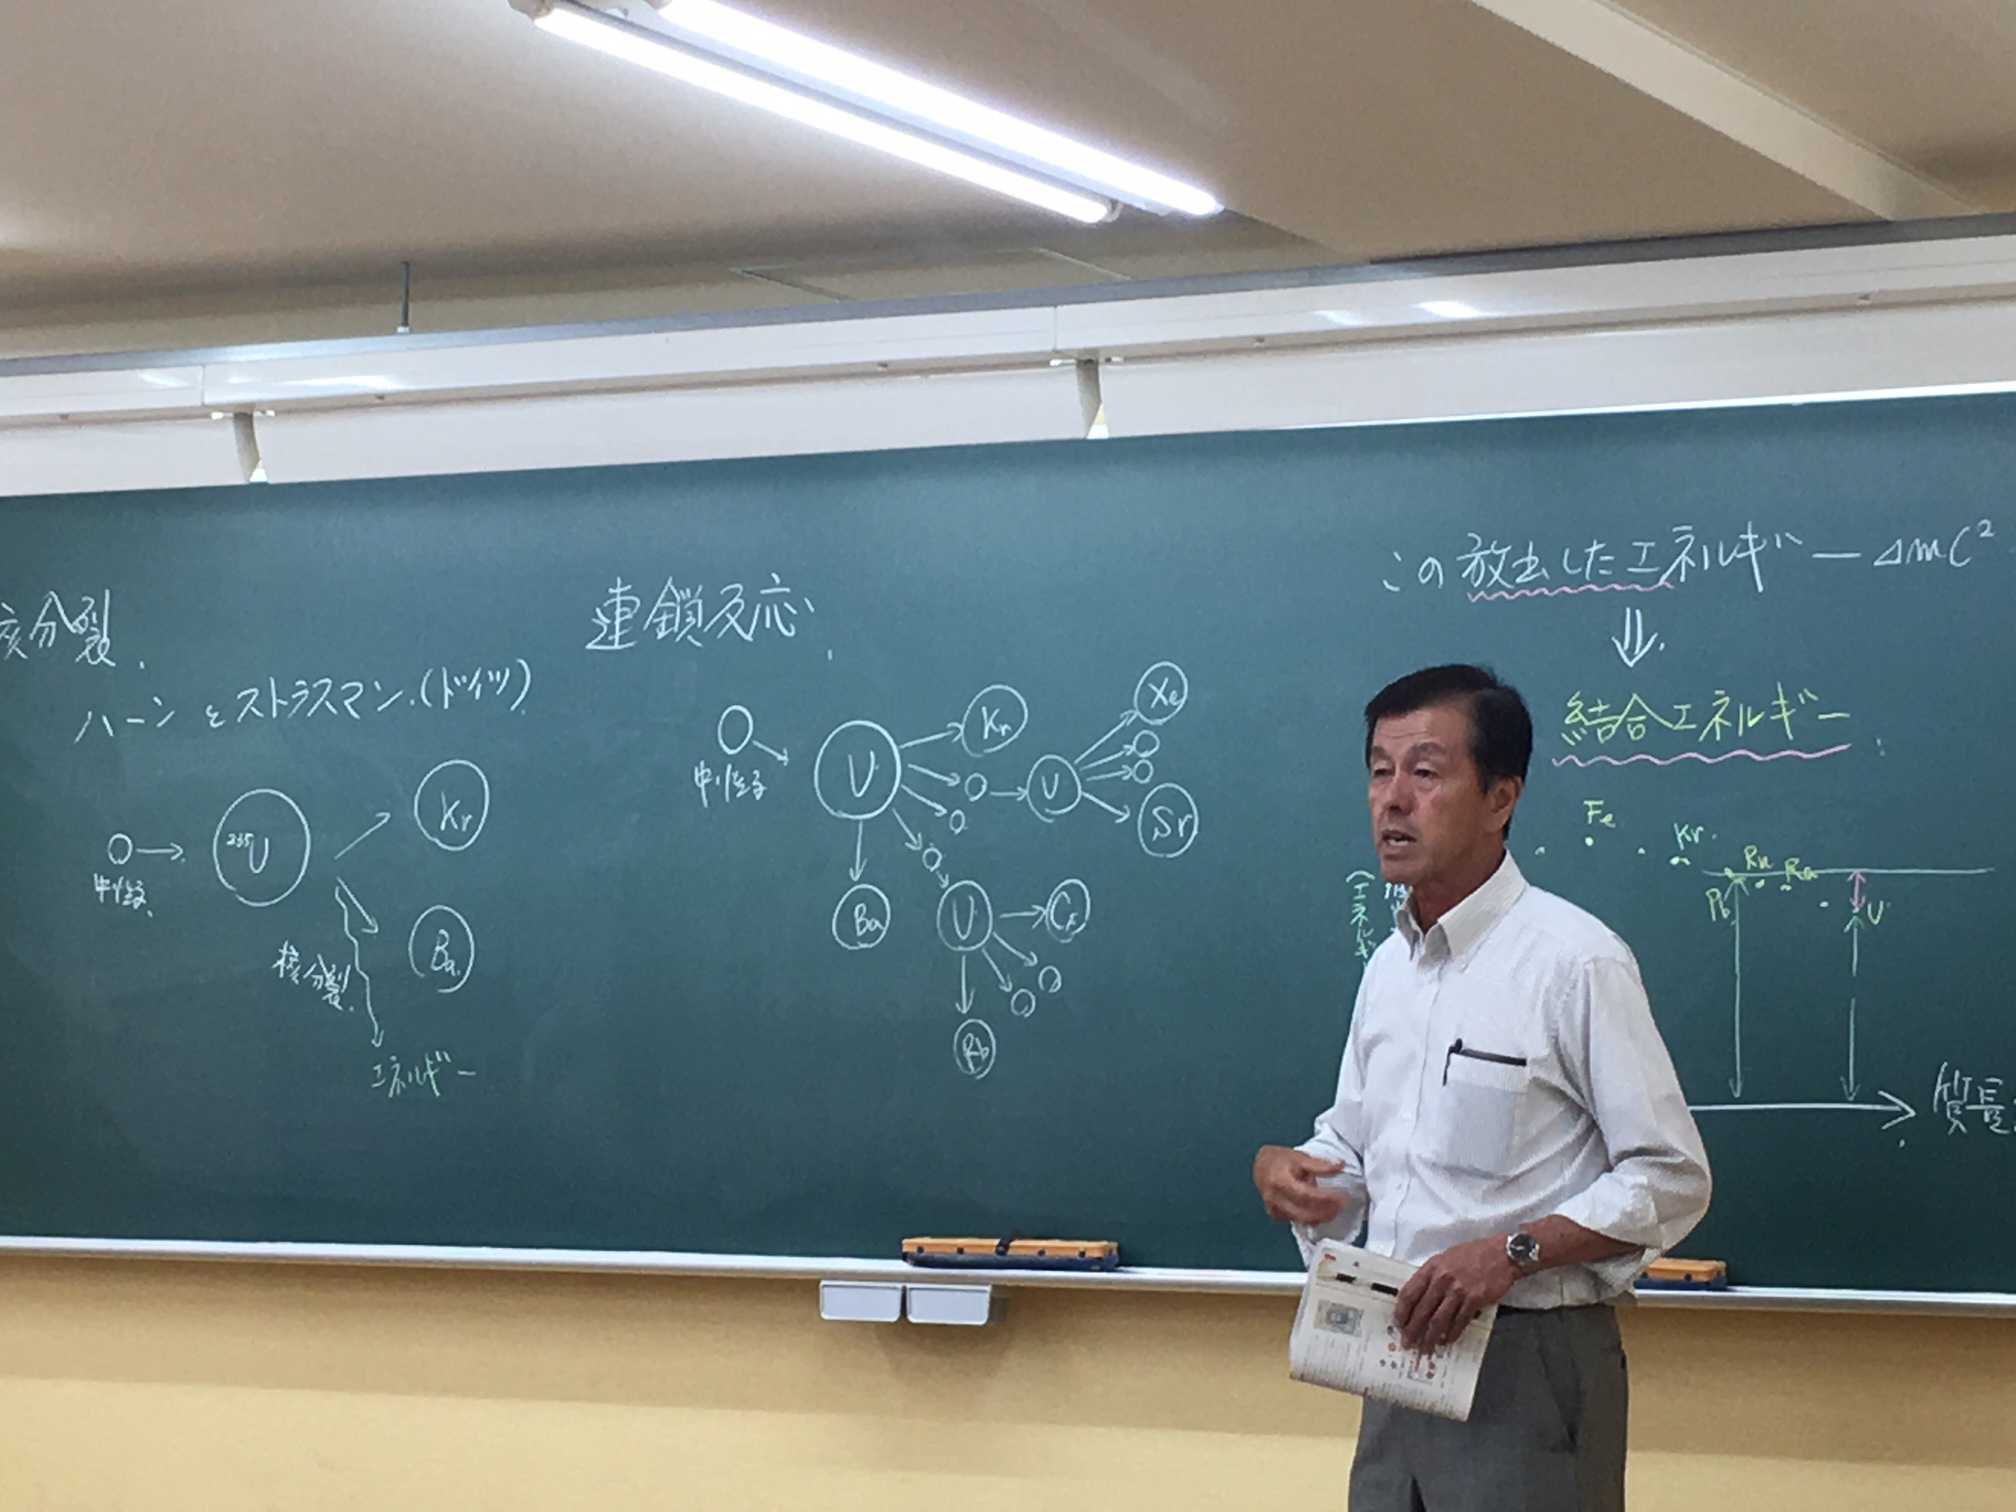 核分裂.
ハーンとストラスマン.(ドイツ)
中性子
²³⁵U
Kr
Ba
核分裂.
エネルギー
連鎖反応,
中性子
U
Kr
U
Xe
Sr
Ba
U
Cs
Rb
この放出したエネルギー ΔmC²
⇓.
結合エネルギー
Fe
Kr.
Rn
Ra
Pb
U
(エネルギ
質量